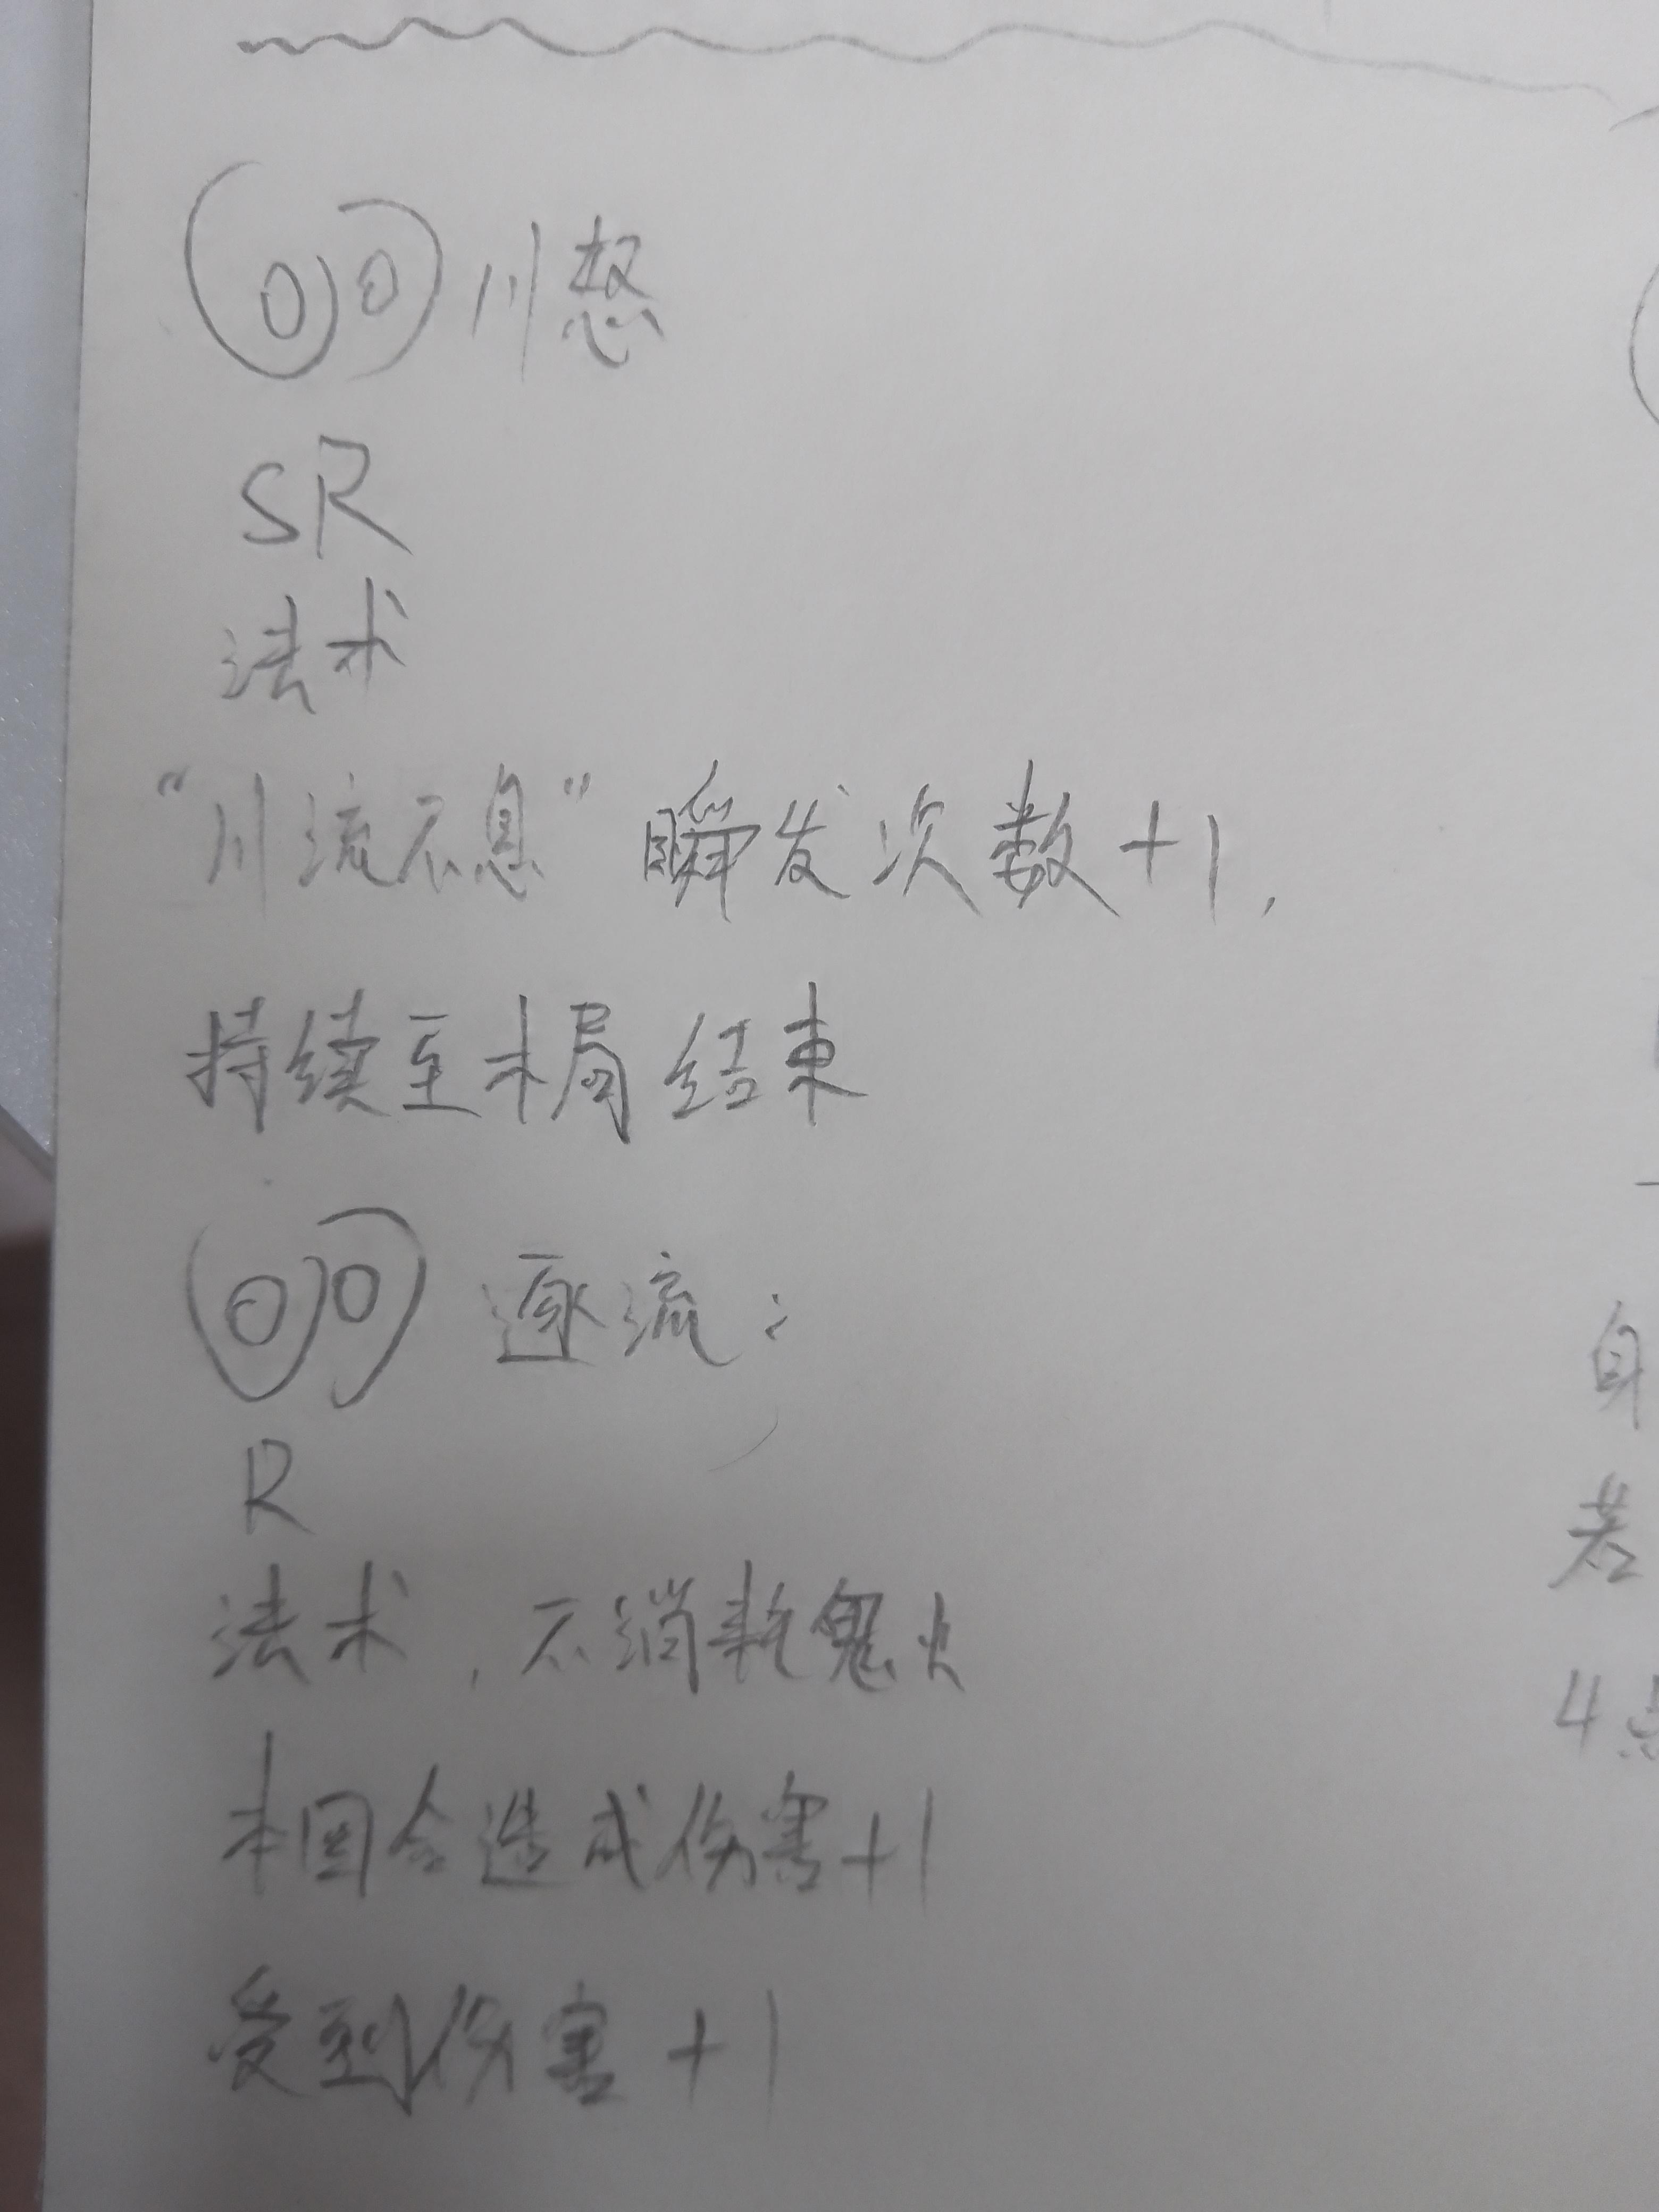 川怒
SR
法术
“川流不息”瞬发次数+1,
持续至本局结束
逐流:
R
法术,不消耗鬼火
本回合造成伤害+1
受到伤害+1
身
若
4点